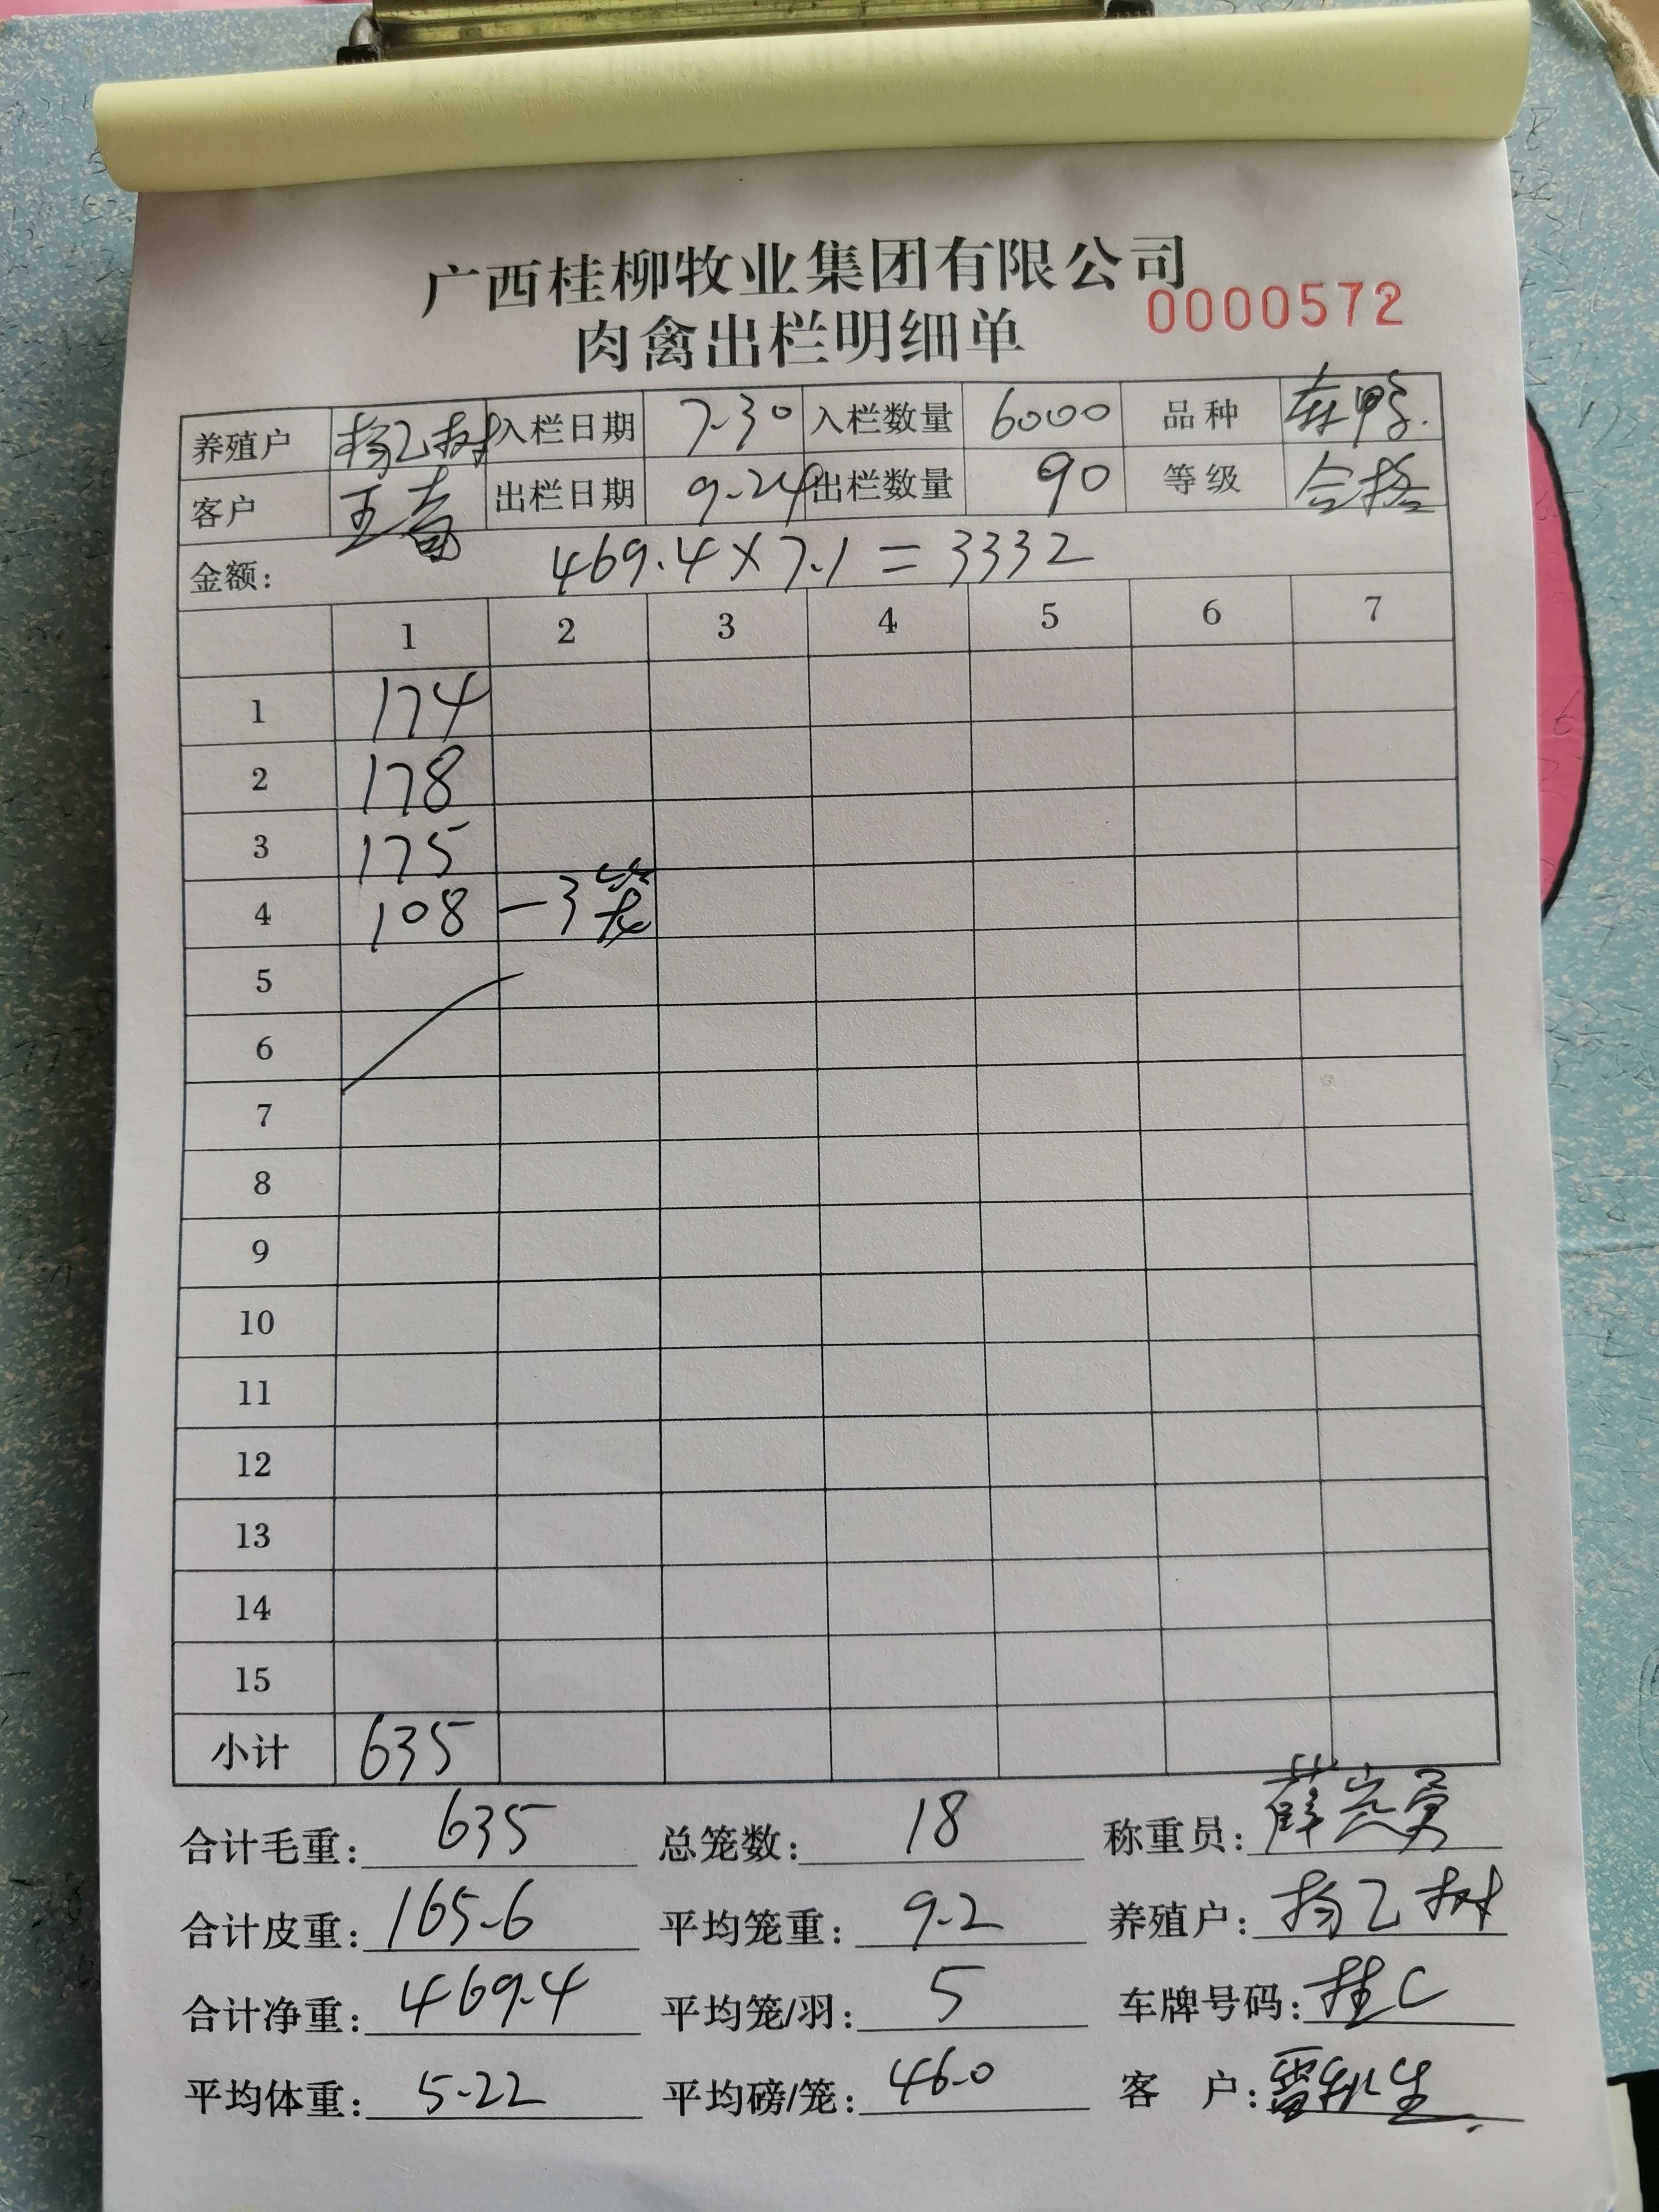 广西桂柳牧业集团有限公司
肉禽出栏明细单 0000572
养殖户 杨乙树 入栏日期 7-30 入栏数量 6000 品种 麻鸭.
客户 王斎 出栏日期 9-24 出栏数量 90 等级 合格
金额: 469.4×7.1=3332
1 2 3 4 5 6 7
1 174
2 178
3 175
4 108 -3笼
5
6
7
8
9
10
11
12
13
14
15
小计 635
合计毛重: 635 总笼数: 18 称重员: 薛
合计皮重: 165-6 平均笼重: 9-2 养殖户: 杨乙树
合计净重: 469-4 平均笼/羽: 5 车牌号码: 桂C
平均体重: 5-22 平均磅/笼: 46-0 客户: